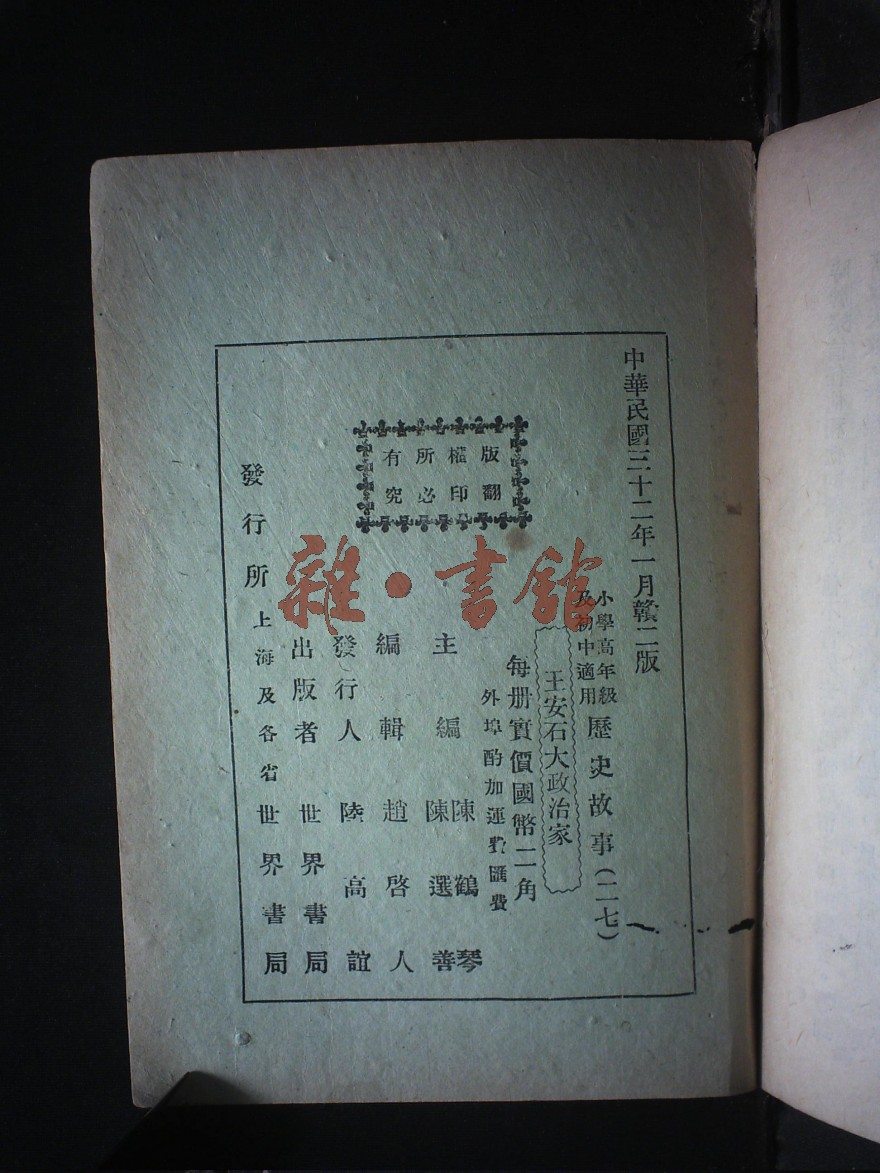 中華民國三十二年一月贛二版
小學高年級
及初中適用
歷史故事(二七)
王安石大政治家
每册實價國幣二角
外埠酌加運費匯費
主編 陳鶴琴
陳選善
編輯 趙啓人
發行人 陸高誼
出版者 世界書局
發行所 上海及各省世界書局
版權所有
翻印必究
雜·書館